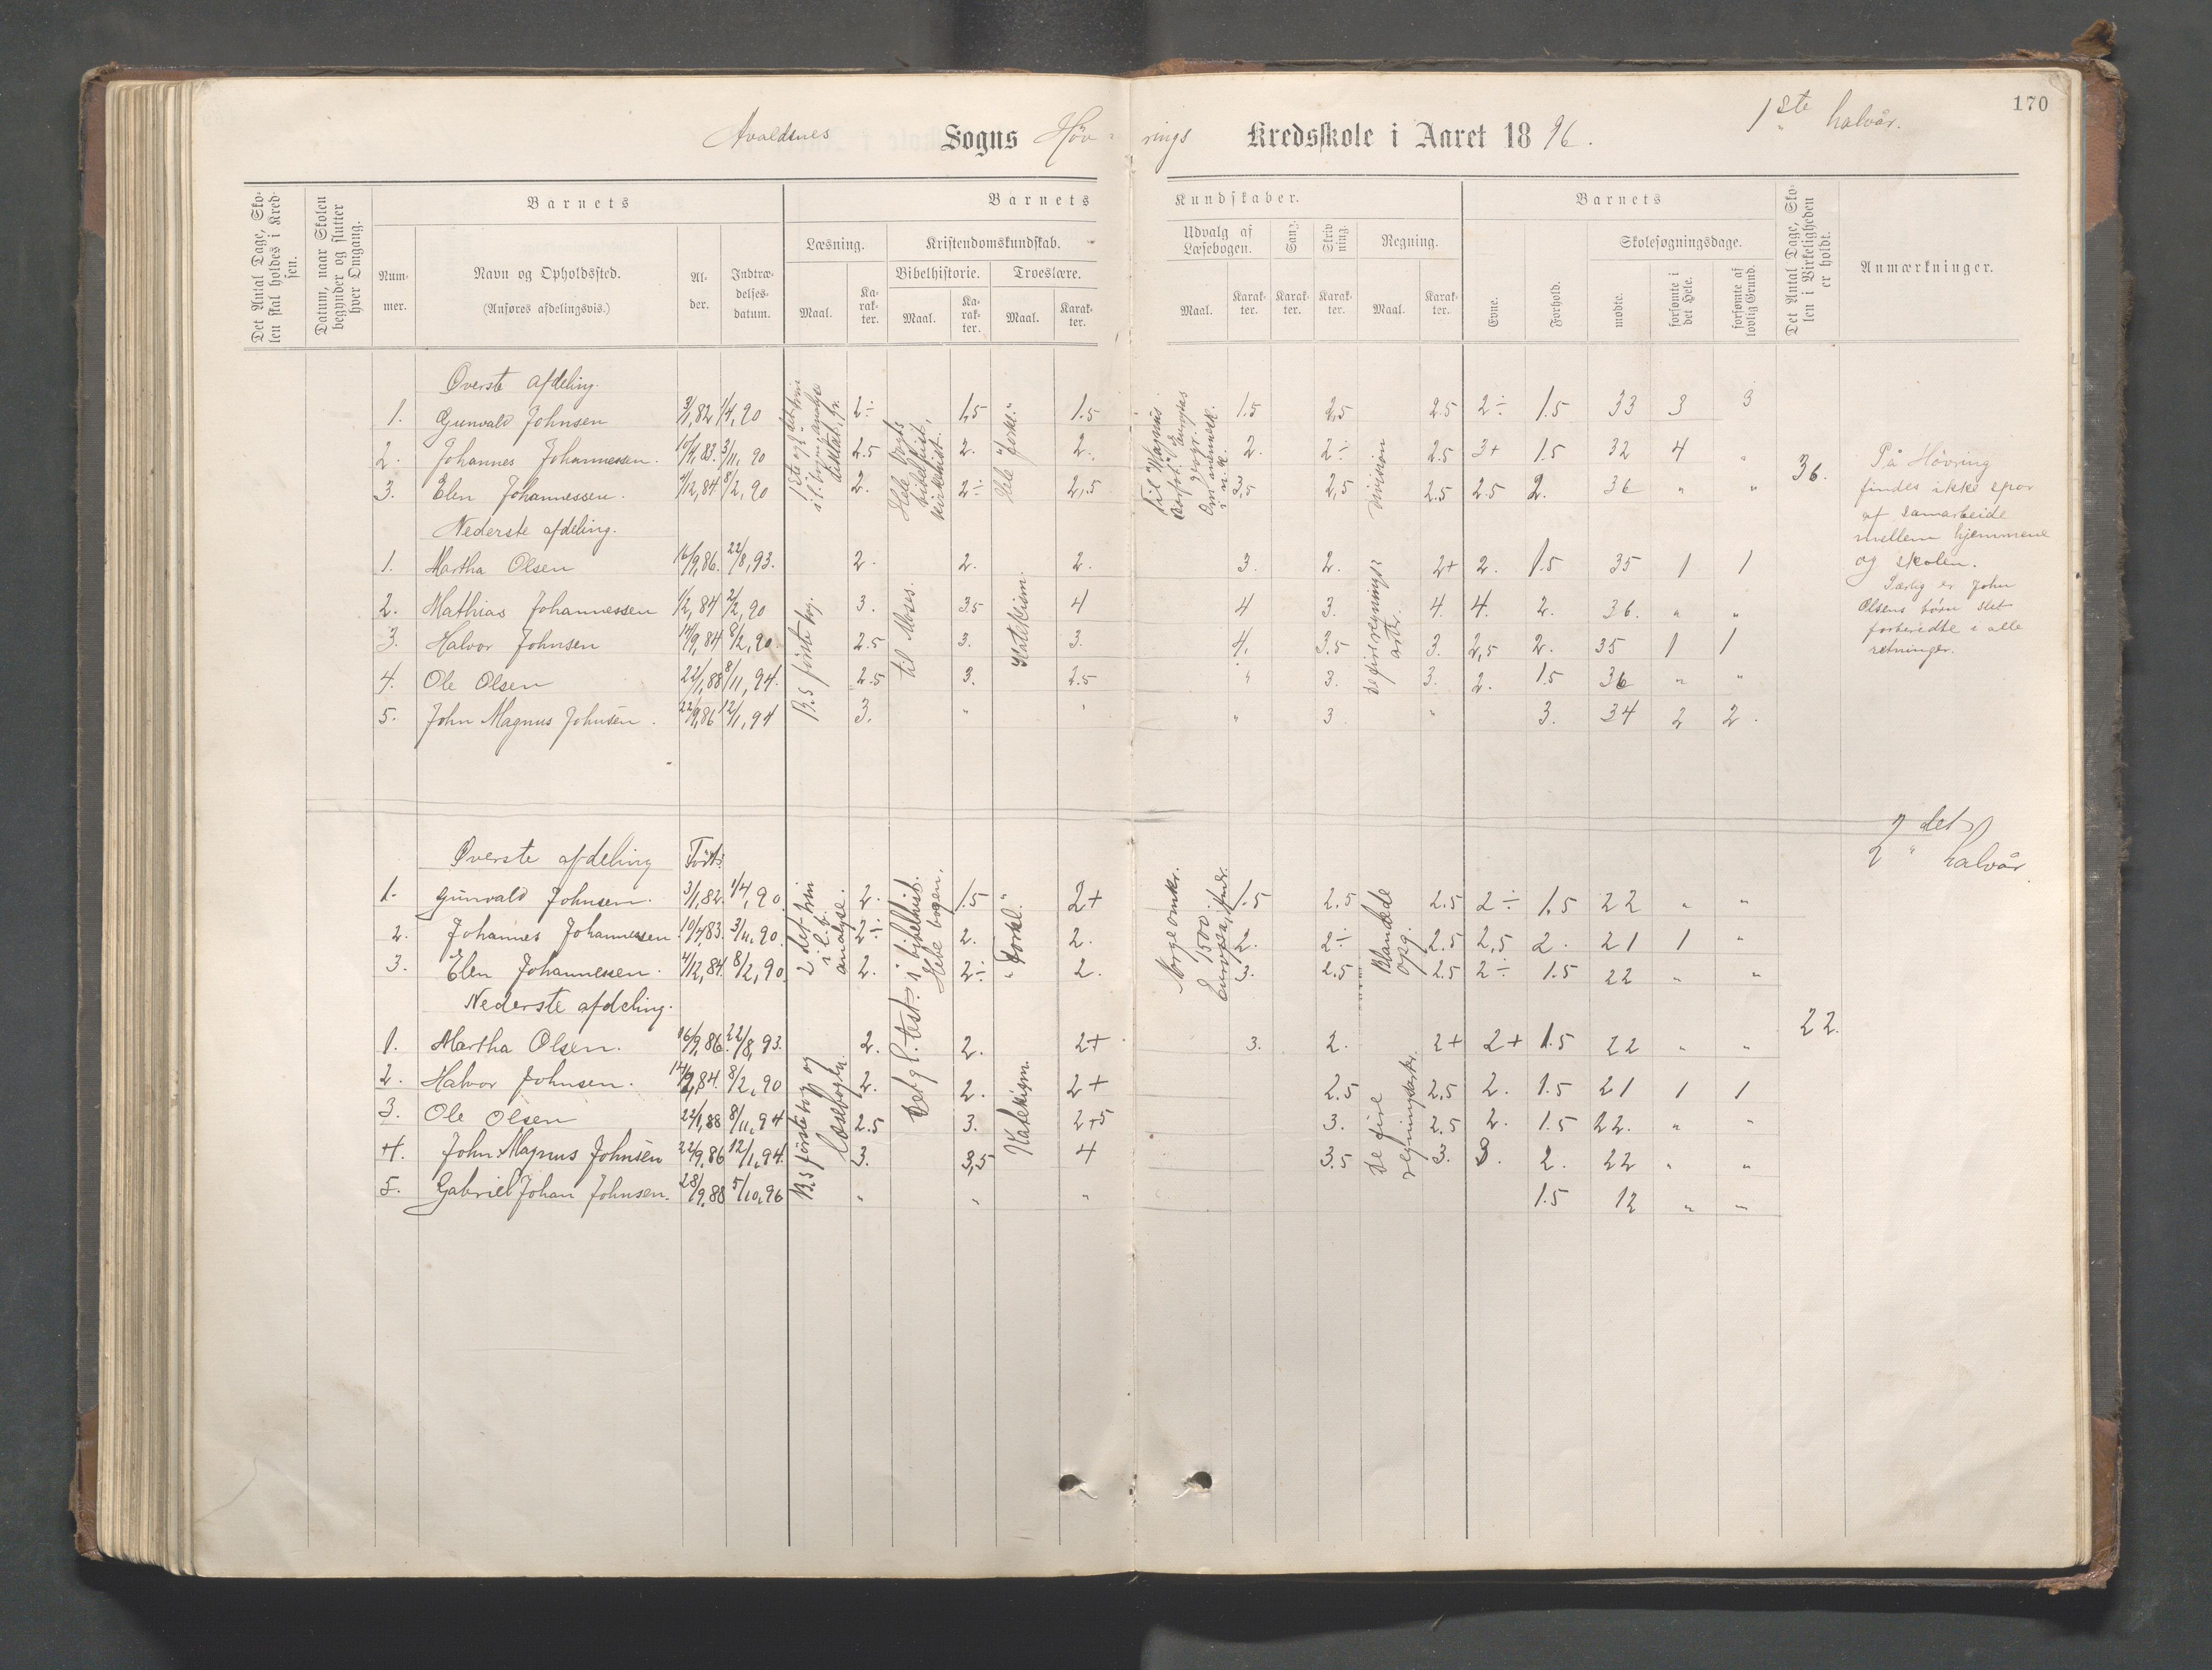 170
1ste halvår.
Avaldsnes Sogns Höv-rings Kredsskole i Aaret 1896.
Det Antal Dage, Skolen skal holdes i Kredsen.
Datum, naar Skolen begynder og slutter hver Omgang.
Barnets
Barnets Kundskaber.
Barnets
Det Antal Dage, Skolen i Virkeligheden er holdt.
Anmærkninger.
Nummer.
Navn og Opholdssted.
(Anføres afdelingsvis.)
Alder.
Indtrædelsesdatum.
Læsning.
Kristendomskundskab.
Bibelhistorie.
Troeslære.
Udvalg af Læsebogen.
Sang.
Skrivning.
Regning.
Evne.
Forhold.
Skolesøgningsdage.
Maal.
Karakter.
Maal.
Karakter.
Maal.
Karakter.
Maal.
Karakter.
Karakter.
Karakter.
Maal.
Karakter.
mødte.
forsømte i det Hele.
forsømte af lovlig Grund.
Øverste afdeling.
1. Gunvald Johnsen 3/1,82 1/4,90 2÷ 1.5 1.5 1.5 2,5 2.5 2÷ 1.5 33 3 3
2. Johannes Johannessen. 10/4,83. 3/11,90 2.5 2. 2. 2. 2÷ 2.5 3+ 1.5 32 4 "
3. Elen Johannessen. 4/12,84 8/2,90 2. 2÷ 2,5 2,5 2.5 2.5 2. 36 " "
Hele Vogts bibelhist, kirkehist.
Hele "forkl."
division
36.
Nederste afdeling.
1. Martha Olsen 16/9,86. 22/8,93. 2. 2. 2. 3. 2. 2+ 2. 1.5 35 1 1
2. Mathias Johannessen 1/2,84 2/2,90 3. 3.5 4 4 3. 4. 4. 2. 36. " "
3. Halvor Johnsen 14/9,84 8/2,90. 2.5 3. 3. 4. 3.5 3. 2,5 2. 35 1 1
4. Ole Olsen 22/1,88 8/11,94. 2.5 3. 2.5 " 3. 3. 2. 1.5 36 " "
5. John Magnus Johnsen. 22/9,86 12/1,94 3. " " " 3 " 3. 34 2 2.
R.s første bog.
til Moses.
Katekism.
De fire regningsarter.
På Hövring
findes ikke spor
af samarbeide
mellem hjemmene
og skolen.
Særlig er John
Olsens börn slet
forberedte i alle
retninger.
2det halvår.
Øverste afdeling Födt:
1. Gunvald Johnsen. 3/1,82. 1/4,90 2. 1.5 2+ 1.5 2.5 2.5 2÷ 1.5 22 " "
2. Johannes Johannessen 10/4,83. 3/11,90. 2÷ 2. 2. 2. 2÷ 2.5 2,5 2. 21 1 "
3. Elen Johannessen. 4/12,84 8/2,90 2. 2÷ 2. 3. 2.5 2.5 2÷ 1.5 22 " "
2det trin i l.b. analyse.
Hele bogen.
"Forkl."
Blandede opg.
Nederste afdeling.
22.
1. Martha Olsen. 16/9,86. 22/8,93. 2. 2. 2+ 3. 2. 2+ 2+ 1.5 22 " "
2. Halvor Johnsen. 8/2,90 2. 2. 2+ 2.5 2,5 2. 1.5 21 1 1
3. Ole Olsen 22/1,88 8/11,94 2.5 3. 3. 2.5 2. 1.5 22. " "
4. John Magnus Johnsen 22/9,86 12/1,94. 3. 3,5 4 3.5 3. 3. 2. 22 " "
5. Gabriel Johan Johnsen. 28/9,88 5/10,96 " " " 1.5 12 " "
R.s første bog og læsebogen.
Det gl. test. i bibelhist.
Katekism.
De fire regningsarter.